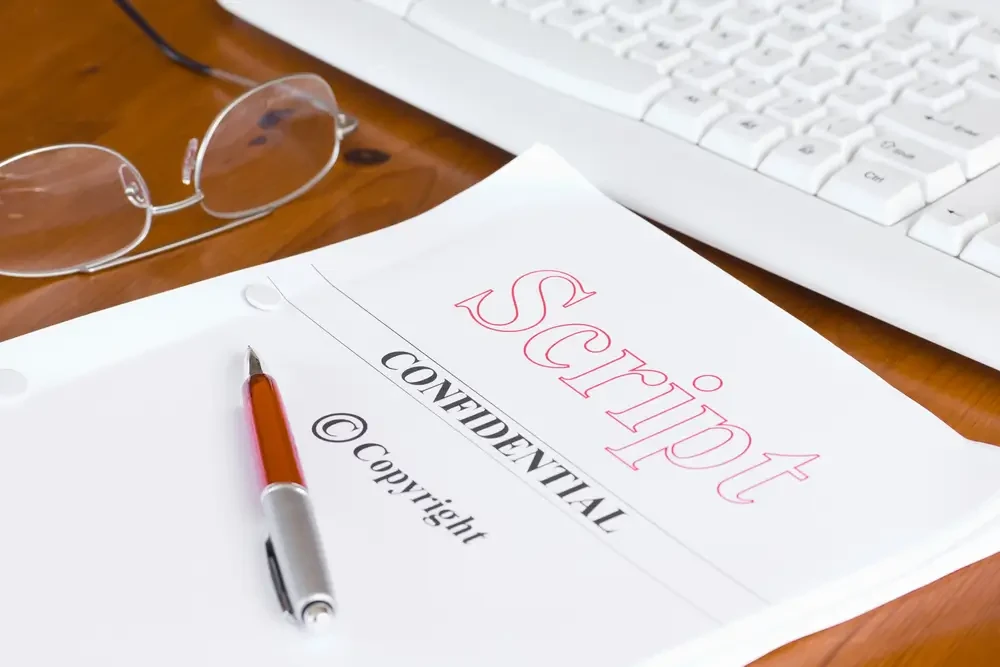 Script
CONFIDENTIAL
© Copyright
Alt
Enter
Shift
Ctrl